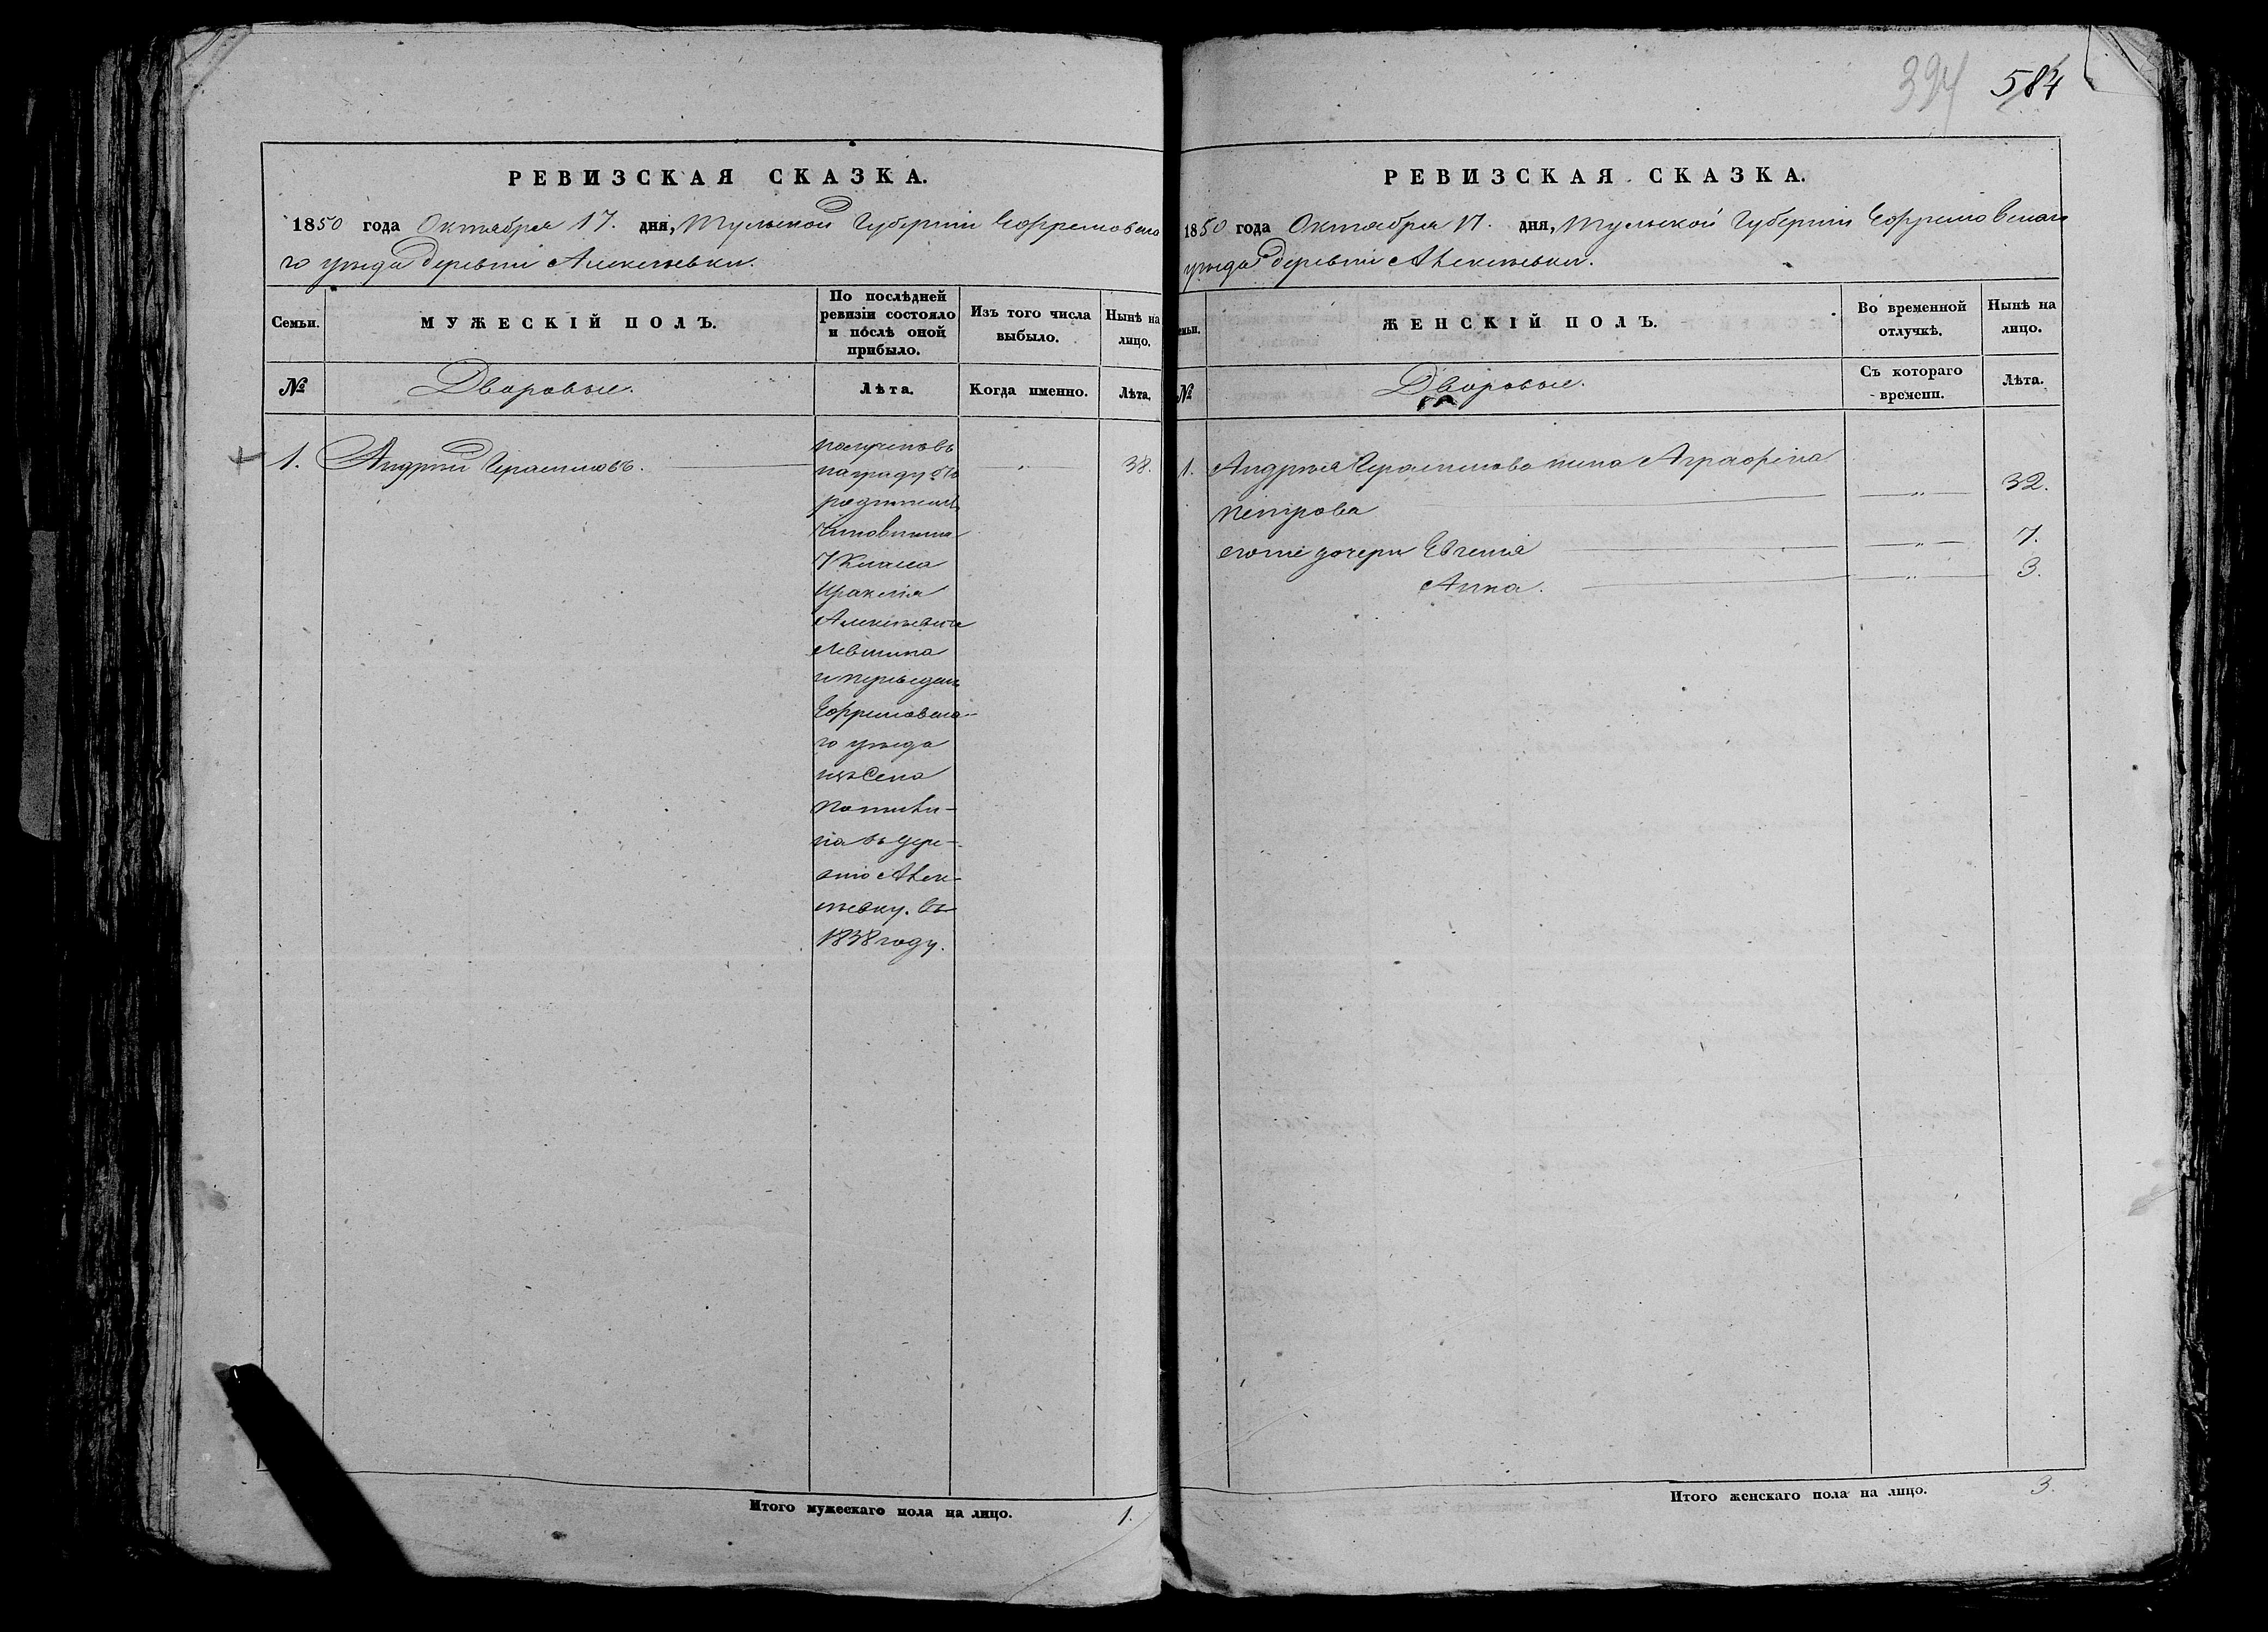 РЕВИЗСКАЯ СКАЗКА.
1850 года Октября 17. дня, Тульской Губерніи Ефремовска
го уезда деревни Алексѣевки.
Семьи.
МУЖЕСКІЙ ПОЛЪ.
По послѣдней
ревизіи состояло
и послѣ оной
прибыло.
Изъ того числа
выбыло.
Нынѣ на
лицо.
№
Дворовые.
Лѣта.
Когда именно.
Лѣта.
1. Андрей Герасимовъ.
38.
полученъ въ
награду отъ
родителя
Чиновника
7 Класса
Ираклія
Алексѣевича
Левшина
и переведенъ
Ефремовска-
го уезда
изъ Села
въ дере-
вню Алек-
сѣевку. въ
1838 году.
Итого мужескаго пола на лицо. 1.
394 584
РЕВИЗСКАЯ СКАЗКА.
1850 года Октября 17. дня, Тульской Губерніи Ефремовскаго
уезда деревни Алексѣевки.
ЖЕНСКІЙ ПОЛЪ.
Во временной
отлучкѣ.
Нынѣ на
лицо.
№
Дворовые.
Съ котораго
времени.
Лѣта.
1. Андрея Герасимова жена Аграфена
Петрова " 32.
его же дочери Евгенія " 7.
Анна. " 3.
Итого женскаго пола на лицо. 3.